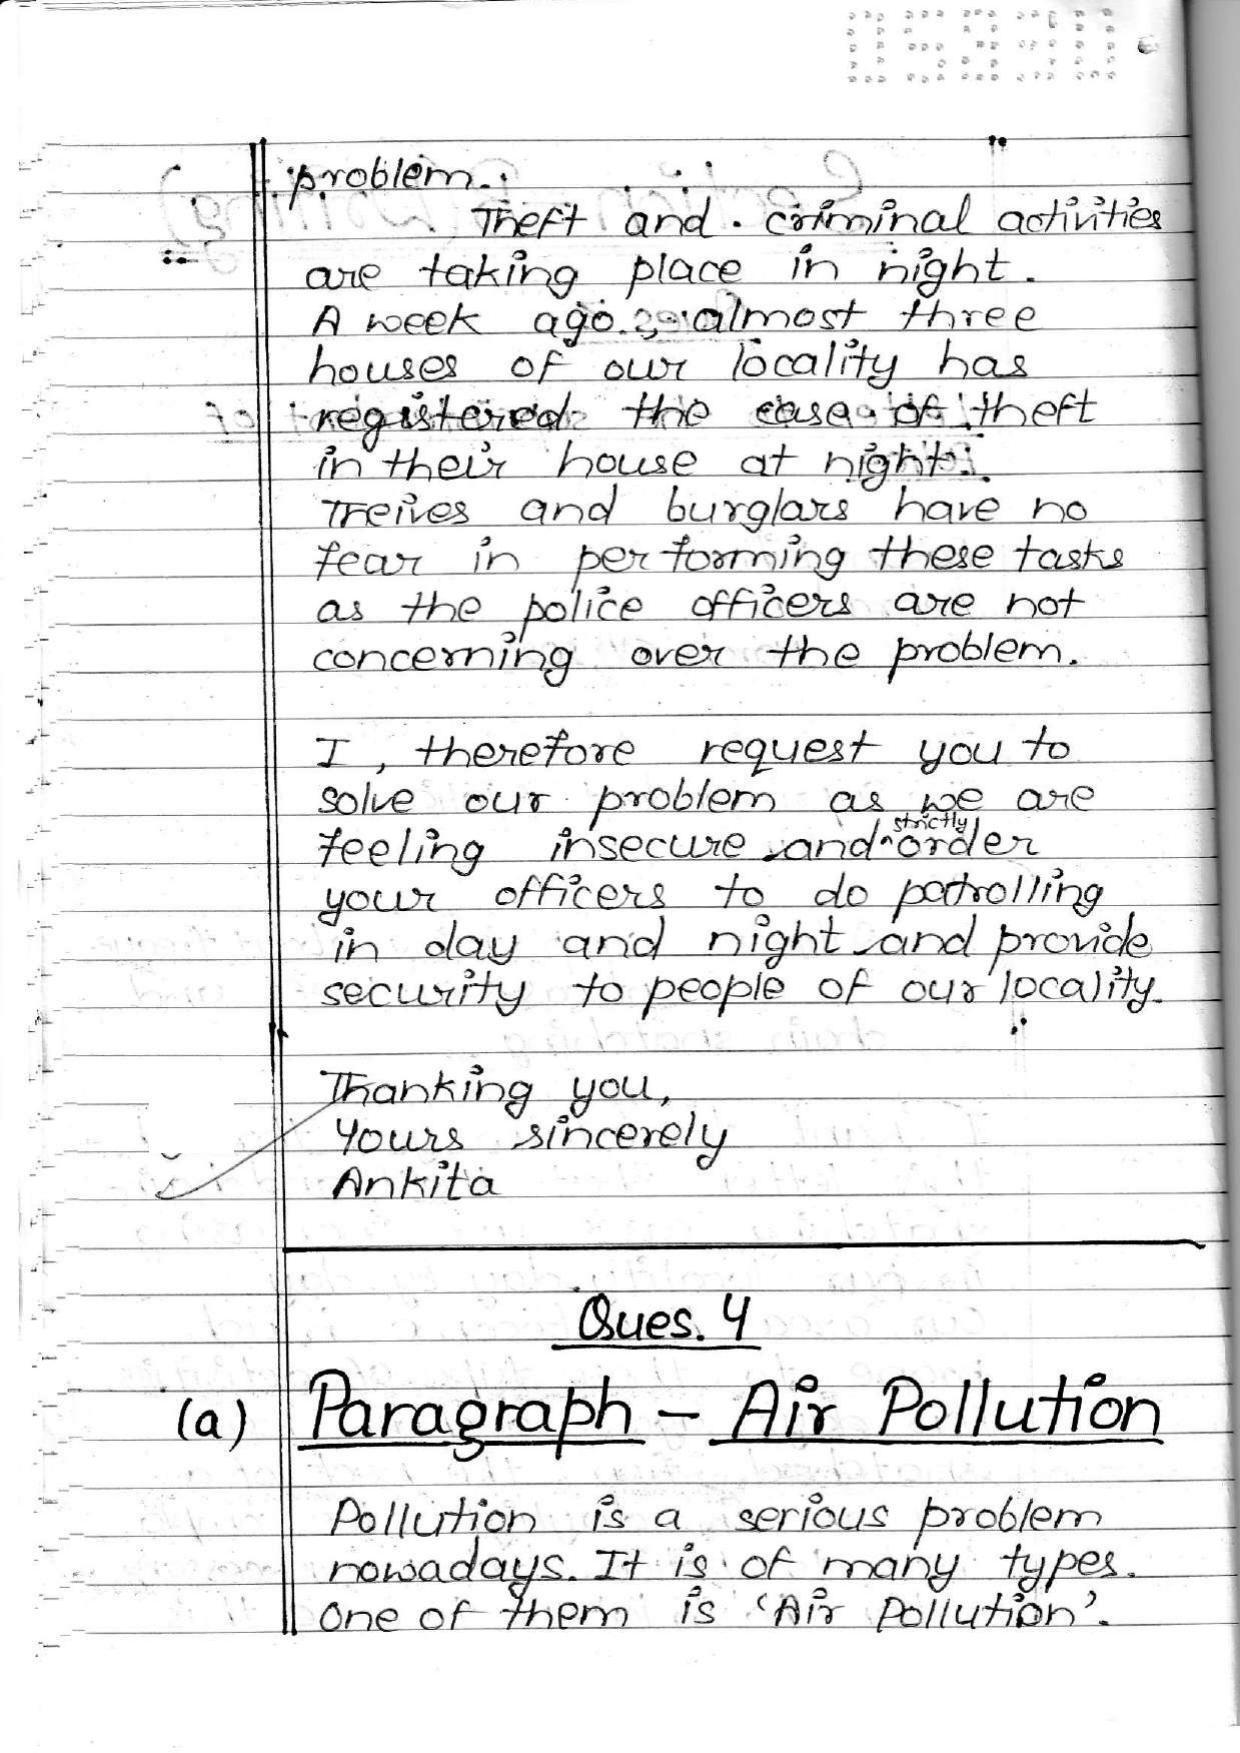 problem.
Theft and criminal activities
are taking place in night.
A week ago almost three
houses of our locality has
registered the case of theft
in their house at night.
Theives and burglars have no
fear in performing these tasks
as the police officers are not
concerning over the problem.
I, therefore request you to
solve our problem as we are
feeling insecure and ^strictly order
your officers to do patrolling
in day and night and provide
security to people of our locality.
Thanking you,
Yours sincerely
Ankita
Ques. 4
(a) Paragraph - Air Pollution
Pollution is a serious problem
nowadays. It is of many types.
One of them is 'Air Pollution'.